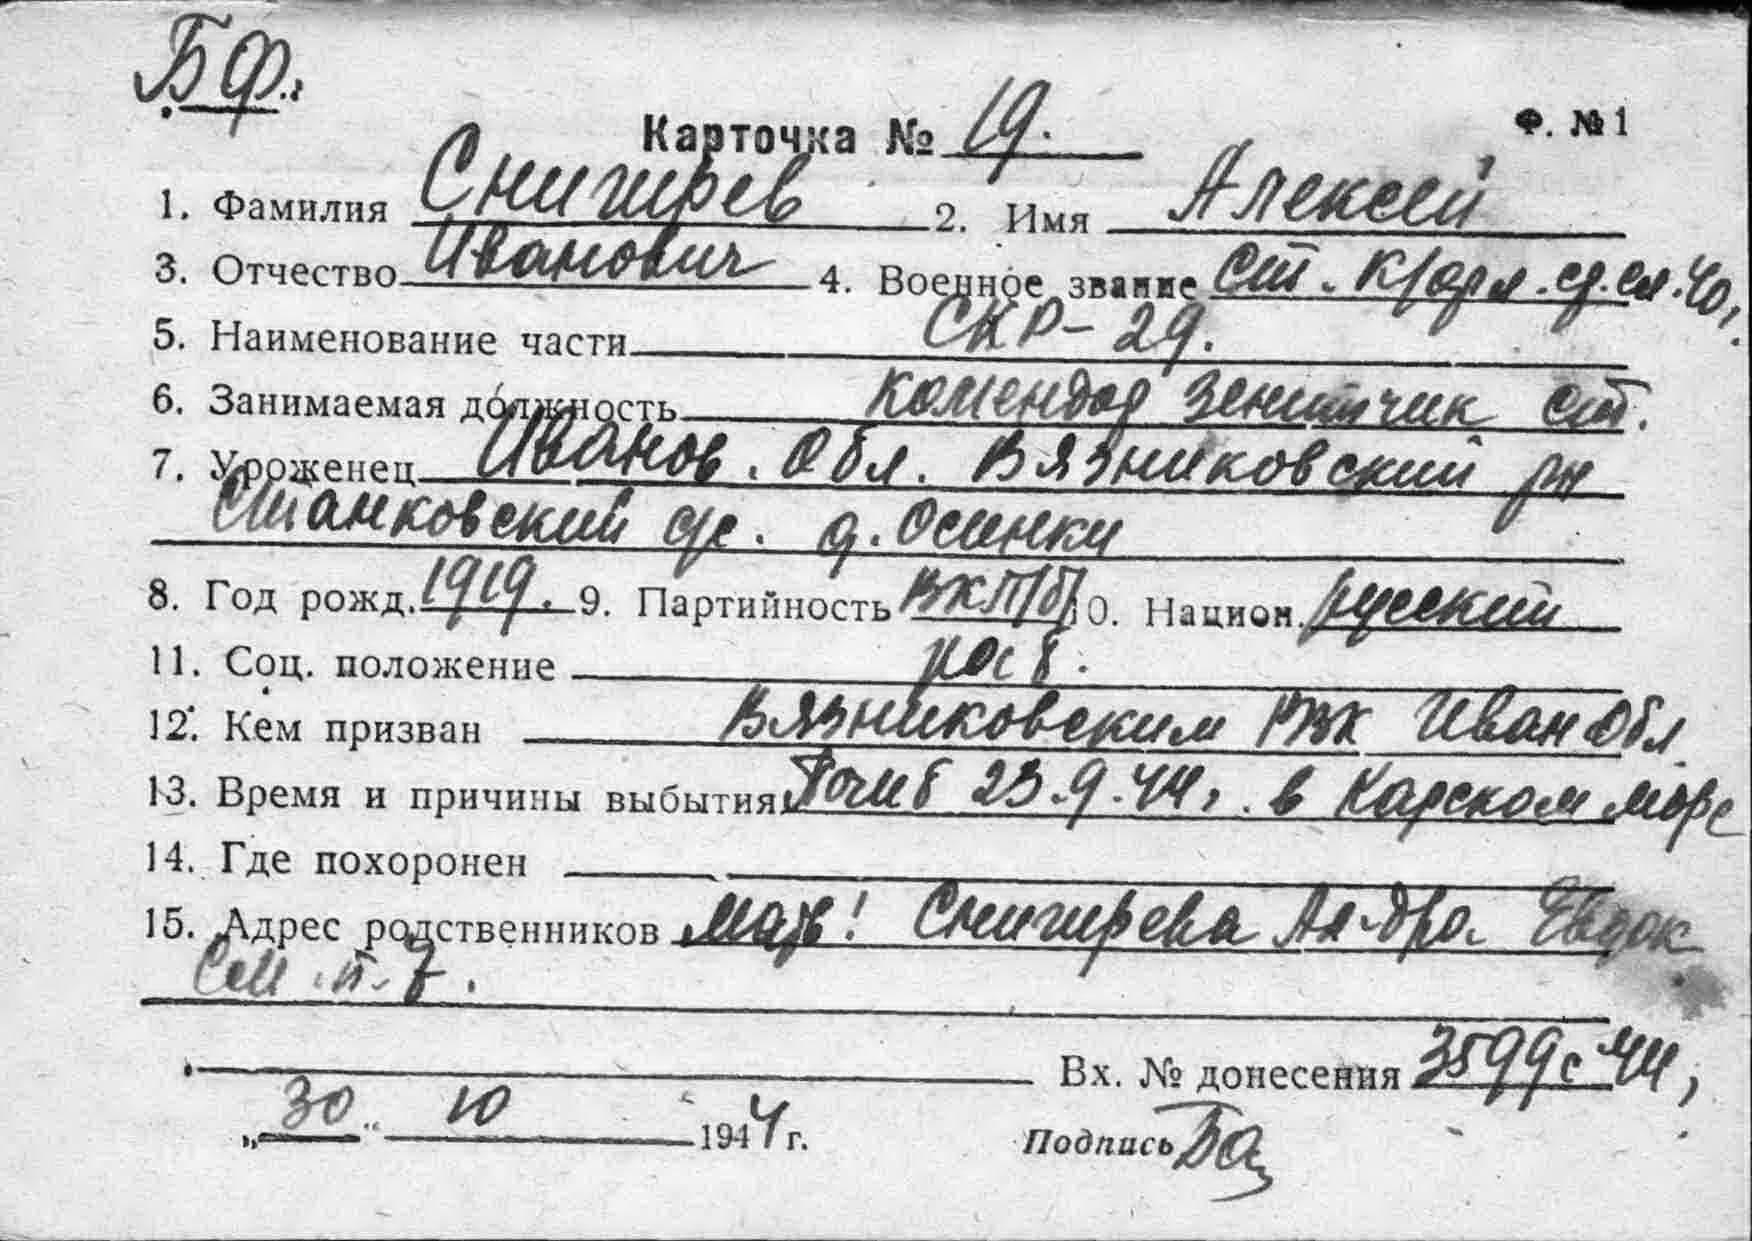 БФ.
Карточка № 19. Ф. № 1
1. Фамилия Снигирев 2. Имя Алексей
3. Отчество Иванович 4. Военное звание ст. кр-фл. ср. сл. 40г.
5. Наименование части СКР-29.
6. Занимаемая должность комендор зенитчик ст.
7. Уроженец Иванов. Обл. Вязниковский рн
Станковский с/с. д. Осинки
8. Год рожд. 1919. 9. Партийность ВКП/б/ 10. Национ. русский
11. Соц. положение раб.
12. Кем призван Вязниковским РВК Иван Обл
13. Время и причины выбытия Погиб 23.9.44г. в Карском море
14. Где похоронен
15. Адрес родственников мать: Снигирева Ал-дра. Евдок
См. п. 7.
Вх. № донесения 3599с 44г,
„30" 10 1944 г. Подпись